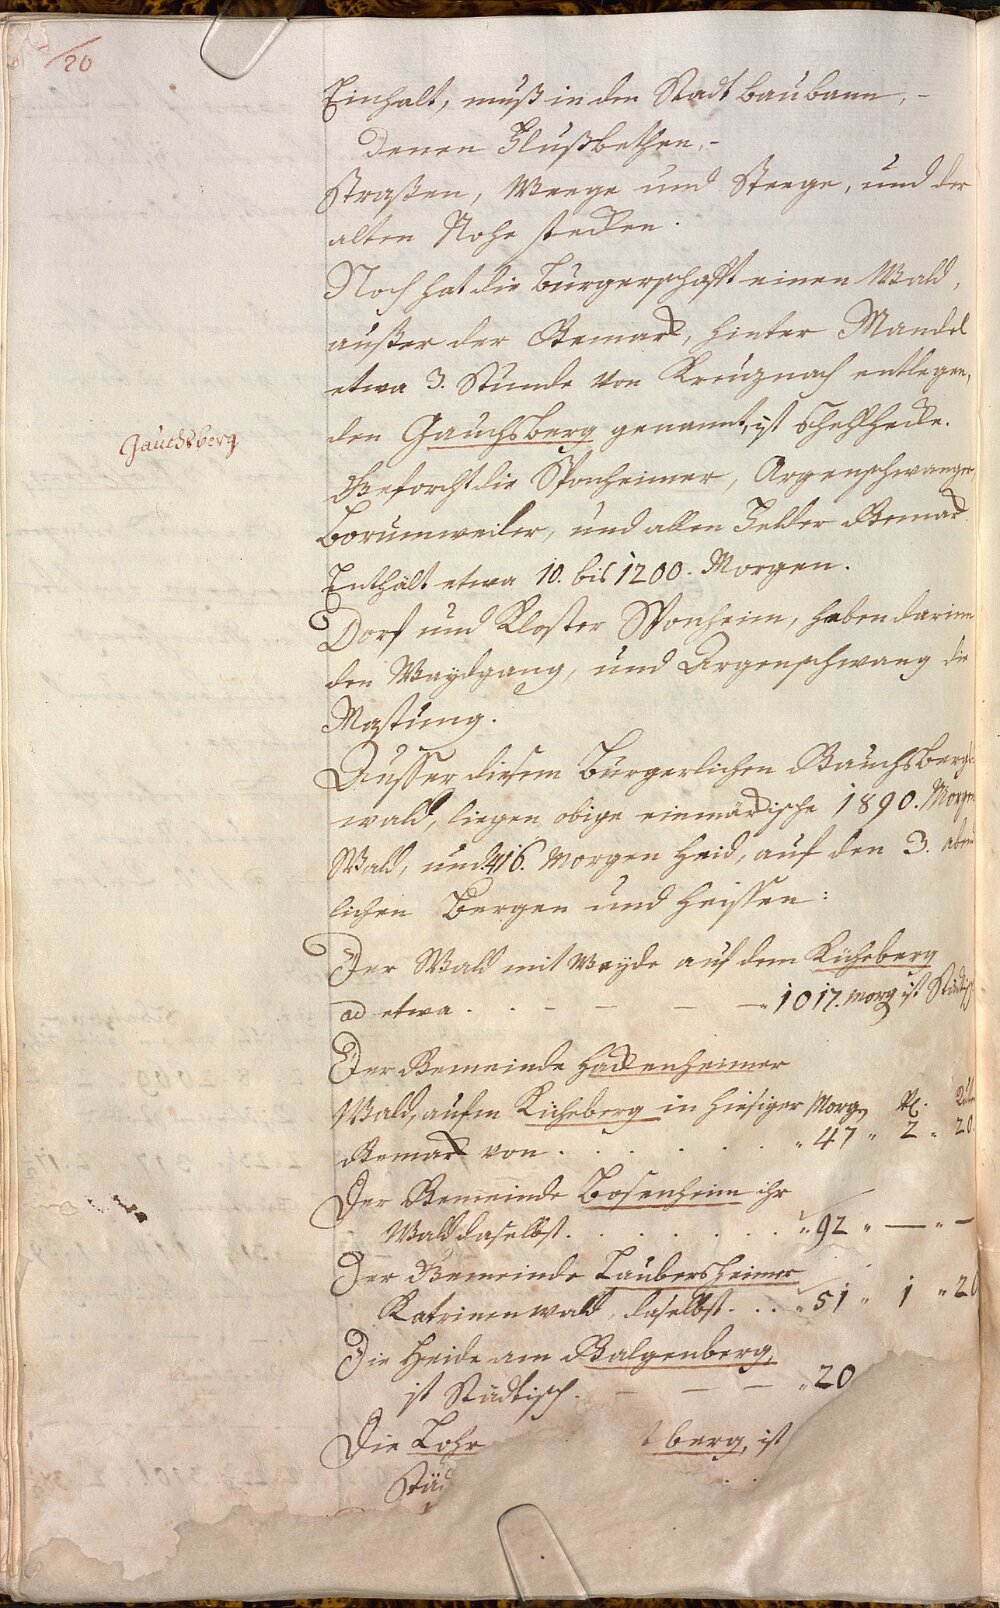 20
Einhalt, muß in den Stadt baubann, -
denen Flußbethen, -
Straßen, Weege und Steege, und der
alten Nohe stecken.
Noch hat die Burgerschafft einen Wald,
außer der Gemark, hinter Mandel
etwa 3. Stunde von Kreuznach entlegen,
den Gauchsberg genannt, ist Schelhecke.
Gauchsberg
Beforcht die Sponheimer, Argenschwanger,
Bockumweiler, und allen Felder Gemark.
Enthält etwa 10. bis 1200. Morgen.
Dorf und Kloster Sponheim, haben darinn
den Waydgang, und Argenschwang die
Mastung.
Ausser diesem Burgerlichen Gauchsberg-
wald, liegen obige einmärkische 1890. Morgen
Wald, und 416. Morgen Heid, auf den 3.
lichen Bergen und heissen:
Der Wald mit Weyde auf dem Küheberg
ad etwa . - - - - 1017. morg ist Städtisch
Der Gemeinde Hackenheimer
Wald, aufm Kicheberg in hiesiger Morg
Gemark von . . . . . . „ 47 „ 2 „ 20
Der Gemeinde Bosenheim ihr
Wald daselbst. . . . . . . „ 92 „ — „ —
Der Gemeinde Laubersheimer
Katrinenwald, daselbst . . . „ 51 „ 1 „ 20
Die Heide am Galgenberg,
ist Städtisch. - - - „ 20
Die Lohr berg, ist
Städ